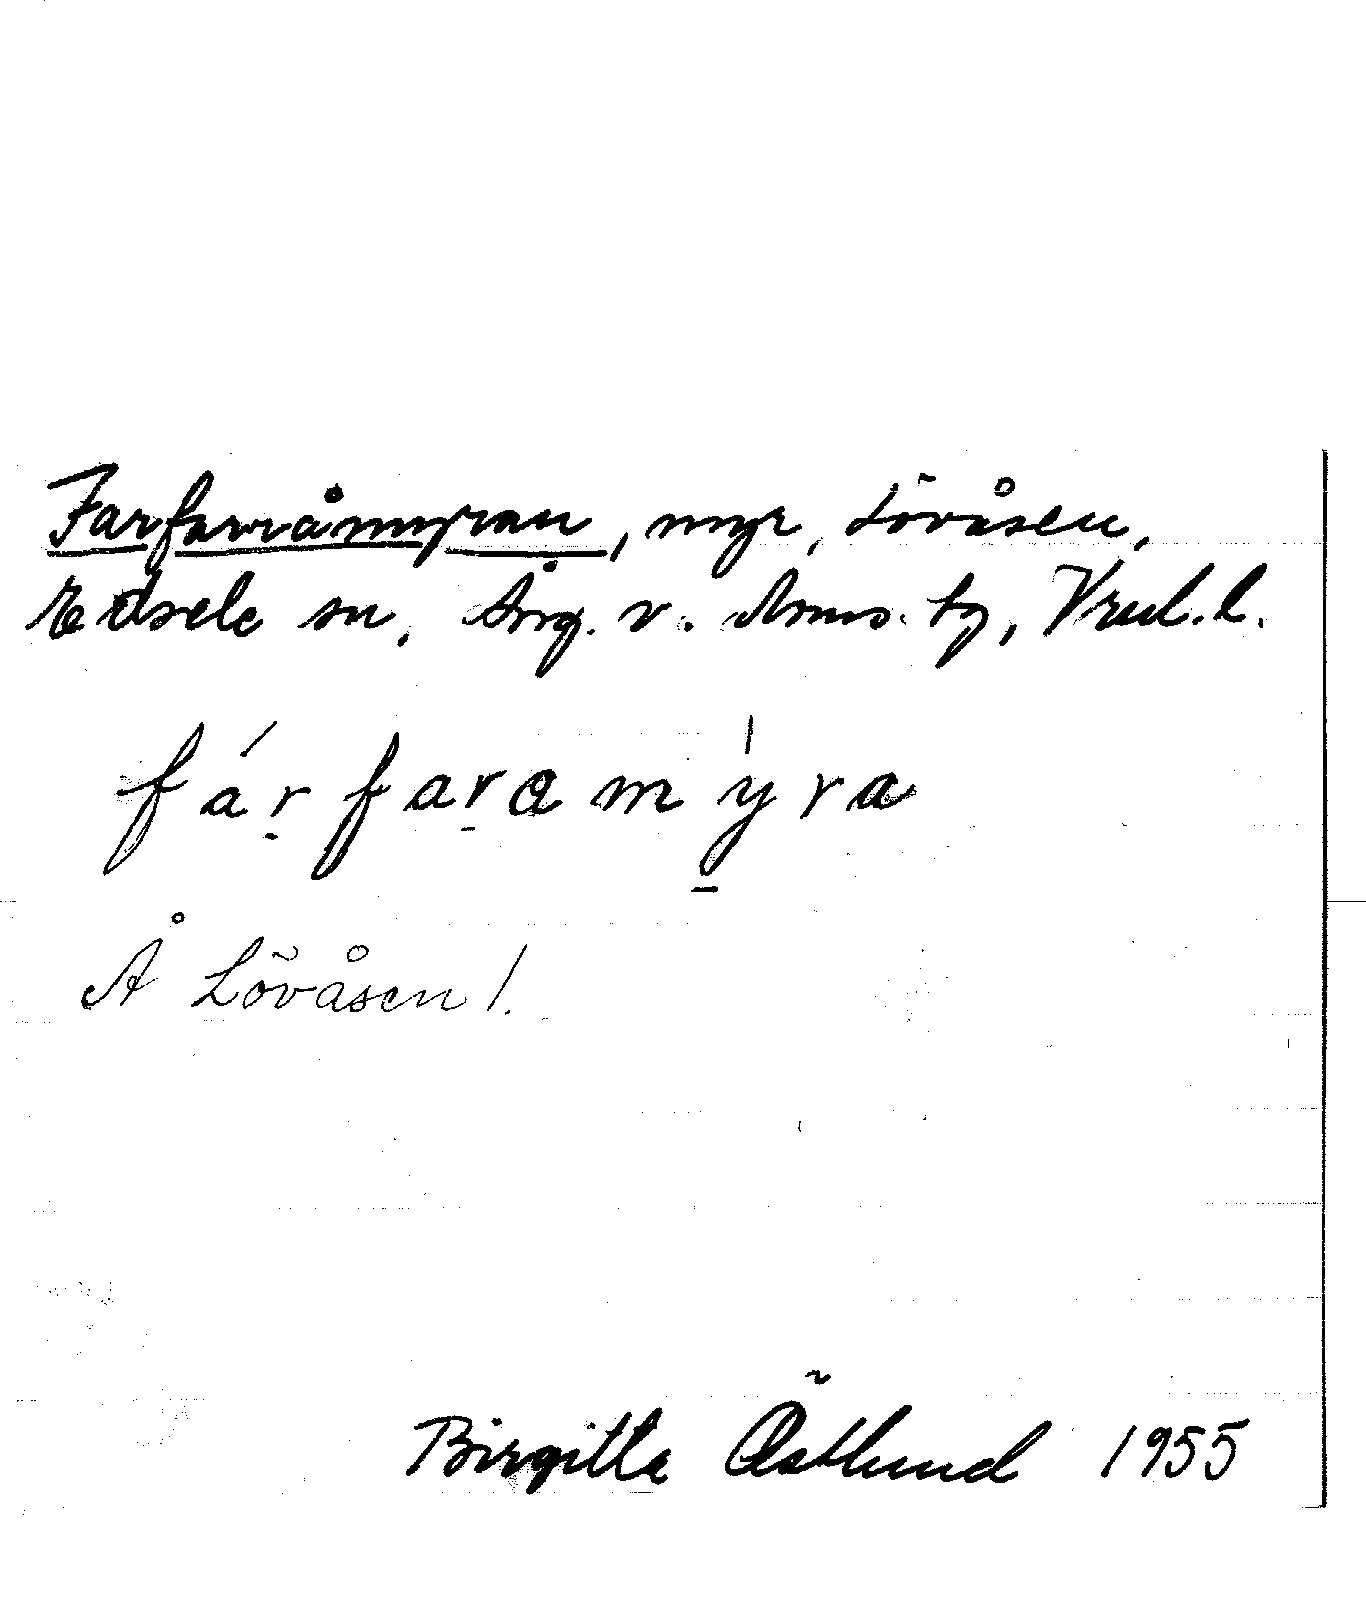 Farfarråmyran, myr, Lövåsen,
Edsele sn, Ång. v. Doms. tg, Vrnl. l.
fárfaramýra
Å Lövåsen 1.
Birgitta Östlund 1955